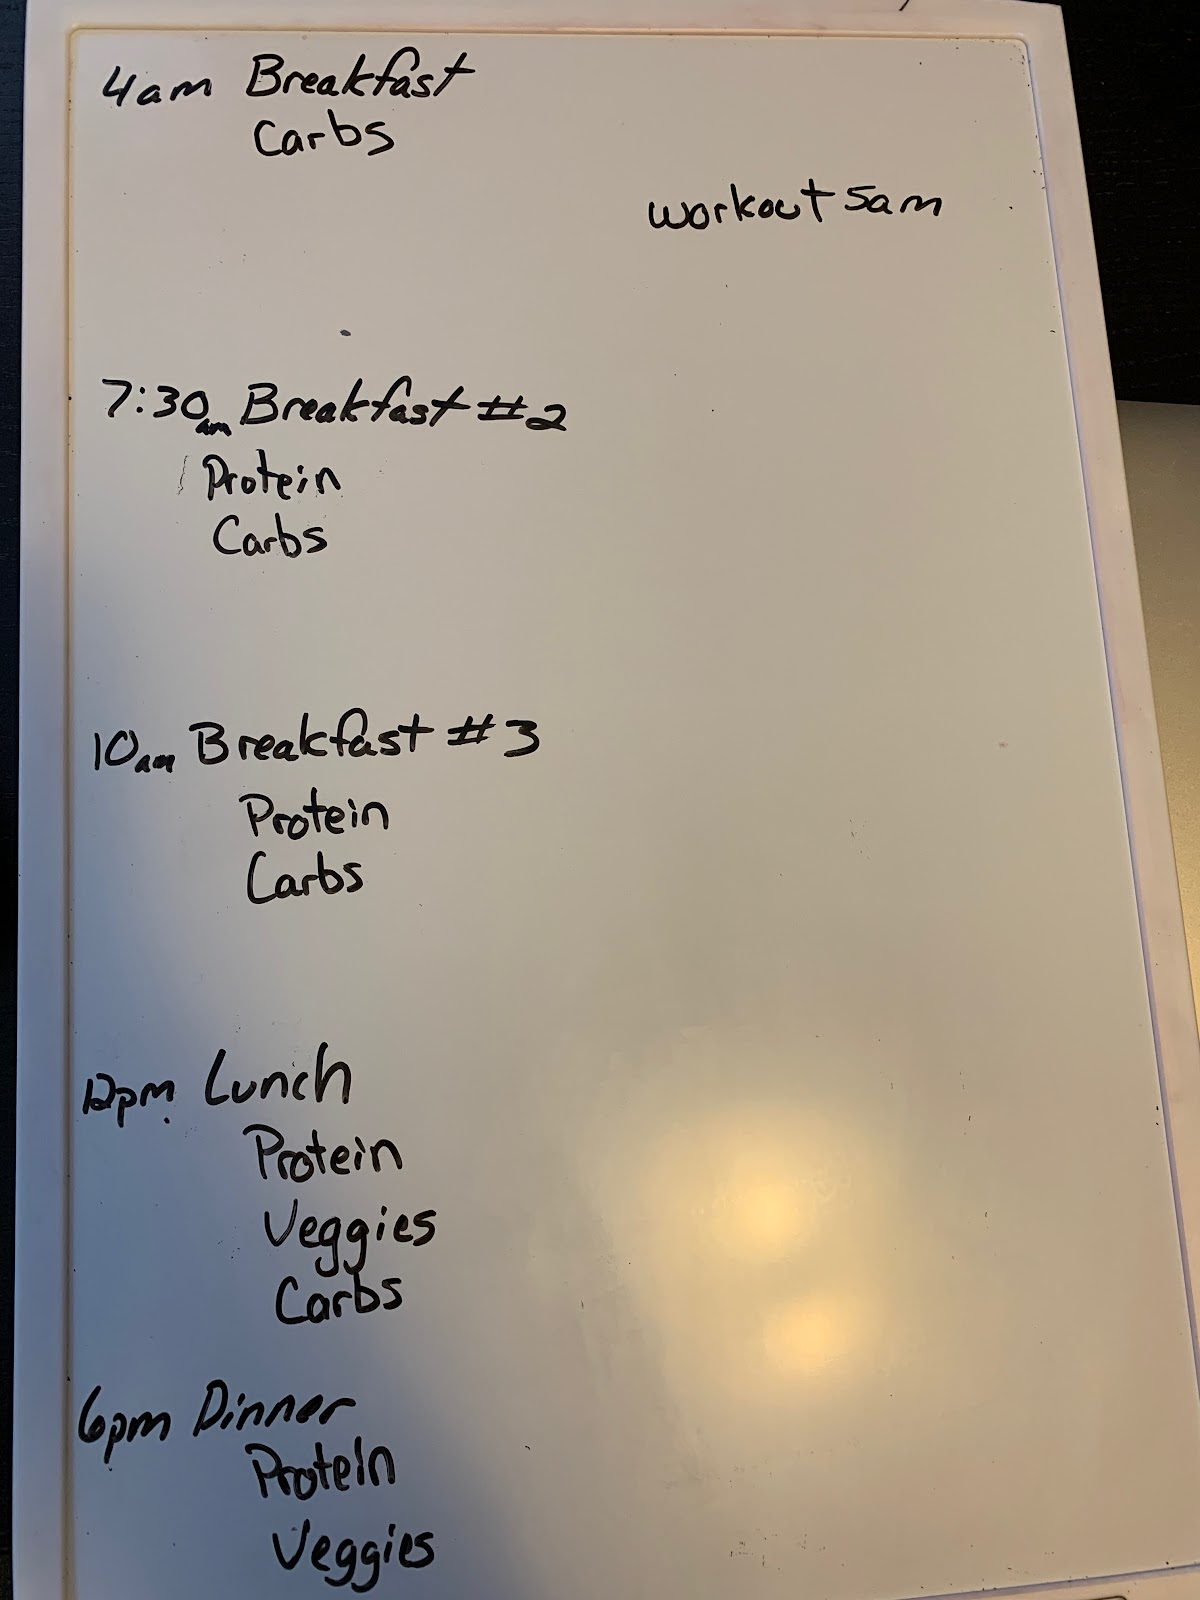 4am Breakfast
Carbs
workout 5am
7:30am Breakfast #2
Protein
Carbs
10am Breakfast #3
Protein
Carbs
12pm Lunch
Protein
Veggies
Carbs
6pm Dinner
Protein
Veggies